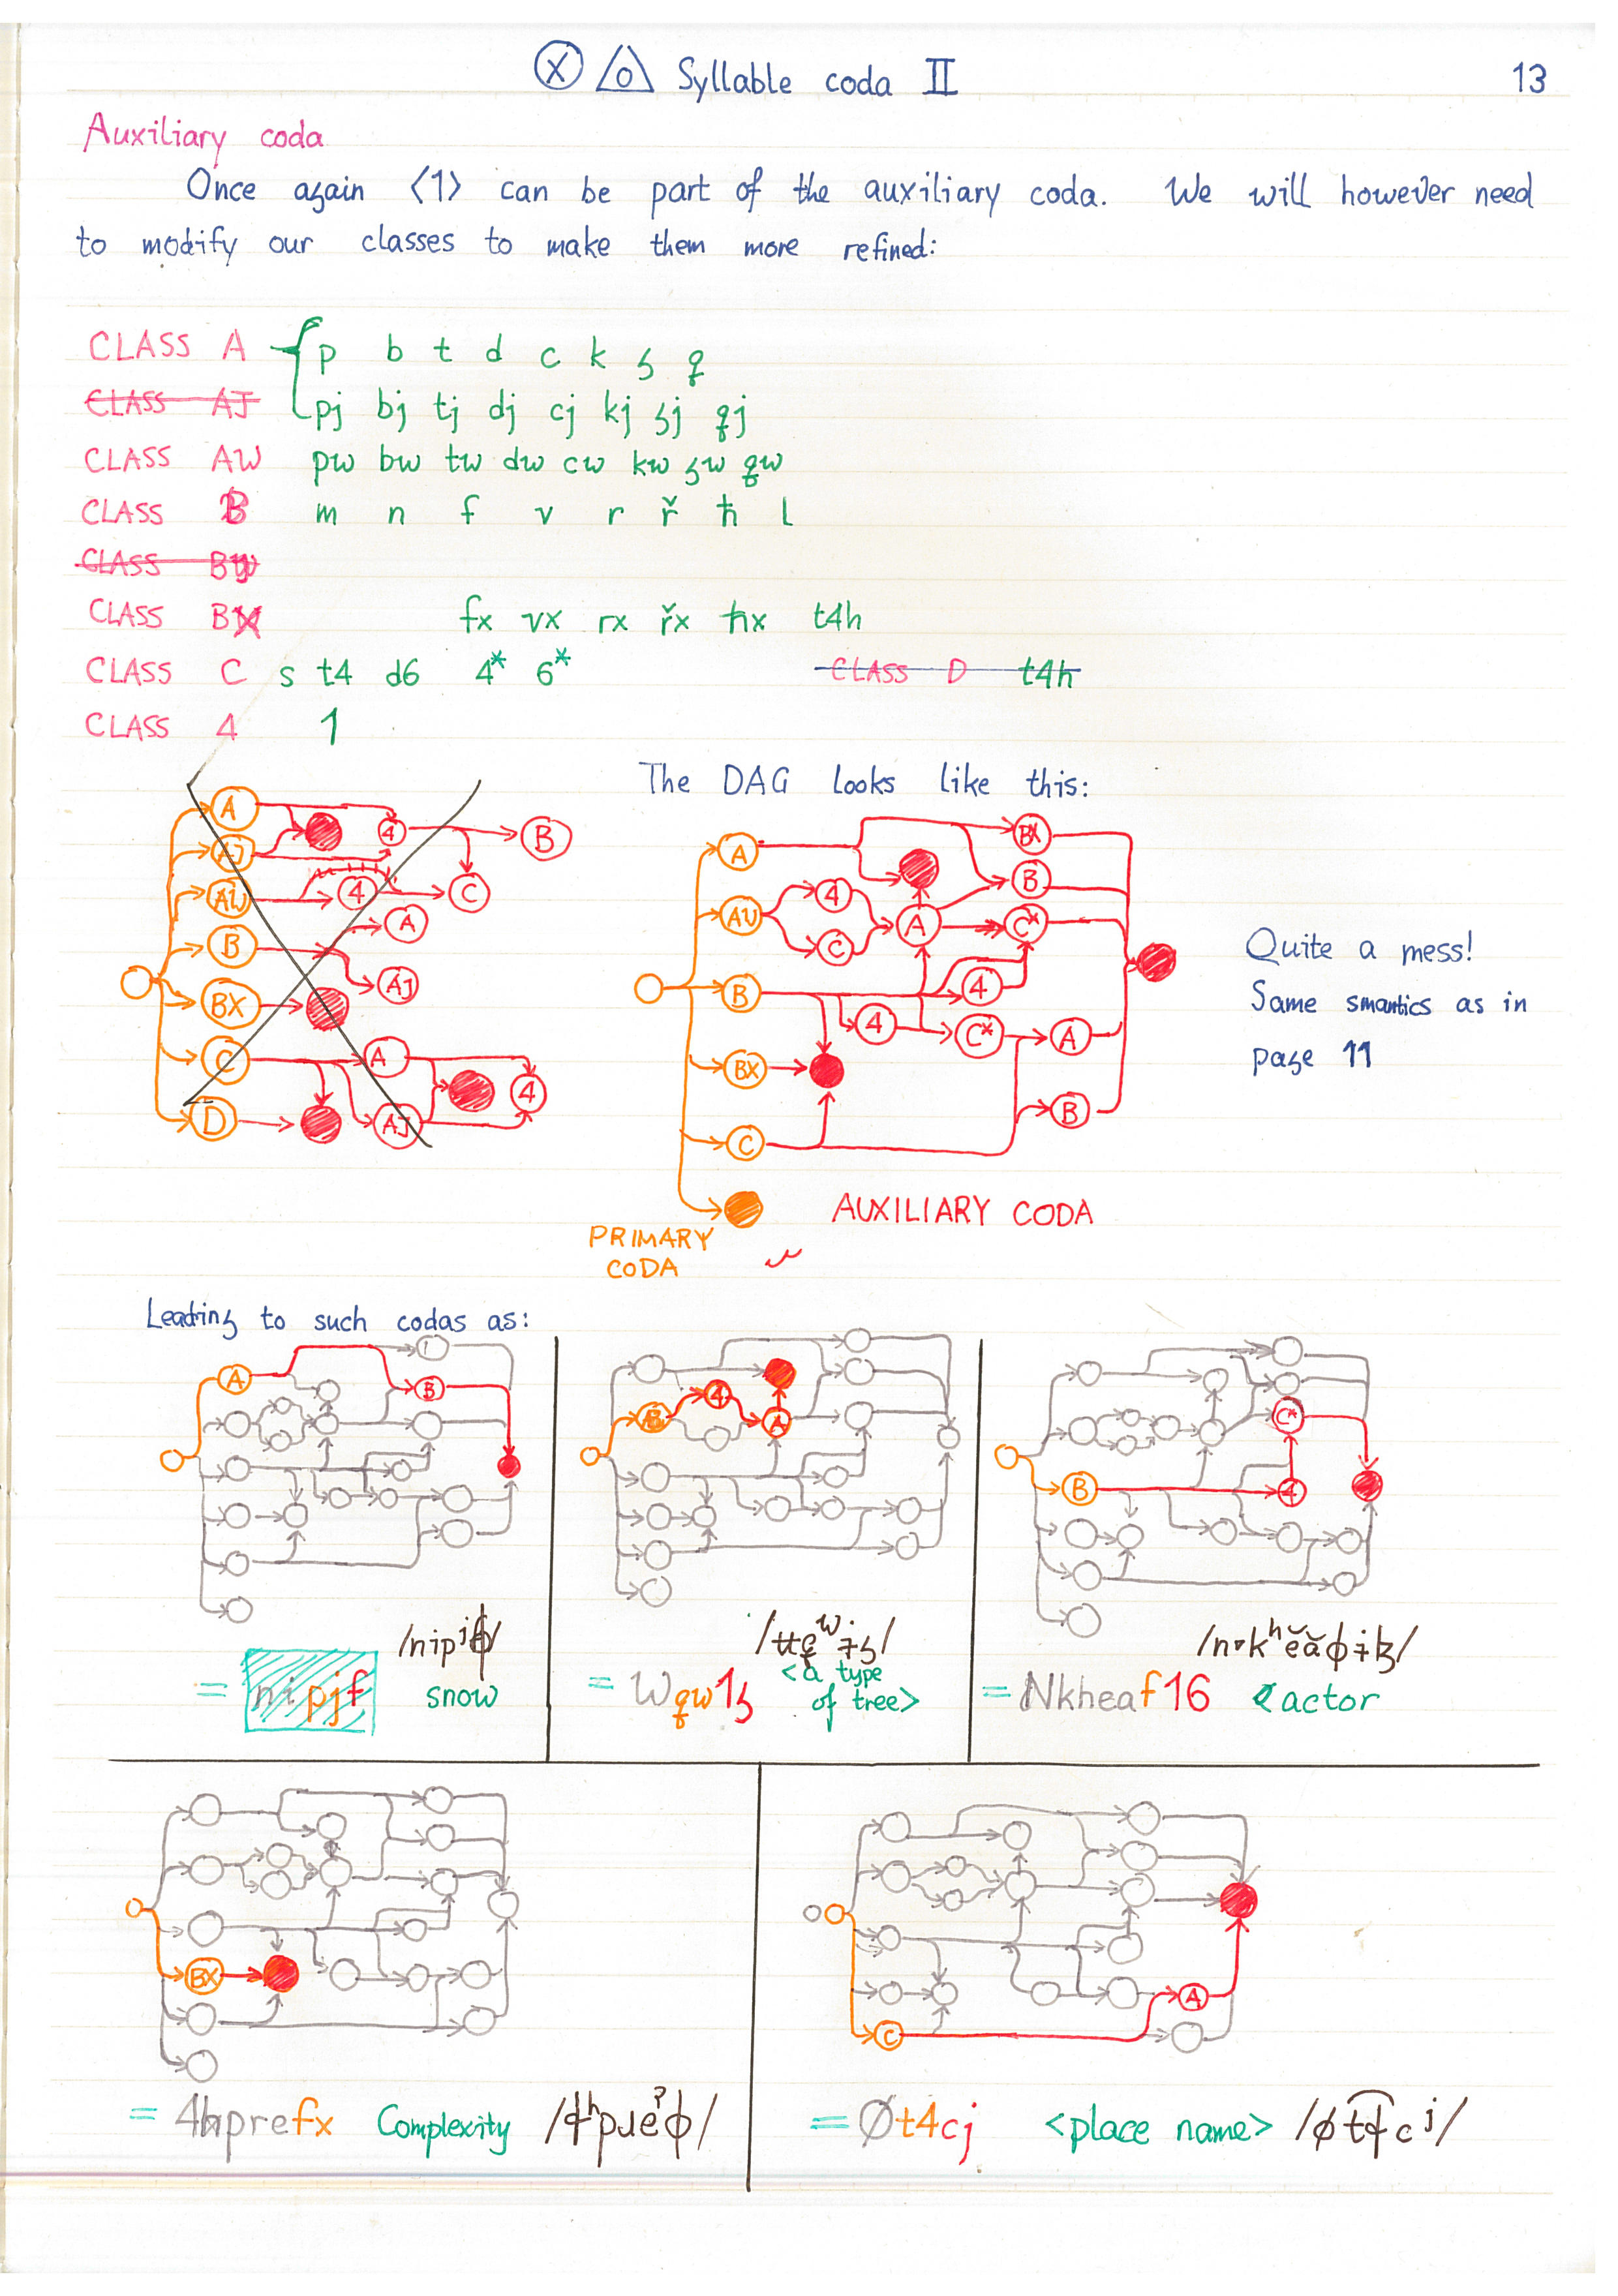 Ⓧ Syllable coda II 13
Auxiliary coda
Once again ⟨1⟩ can be part of the auxiliary coda. We will however need
to modify our classes to make them more refined:
CLASS A p b t d c k ʒ q
CLASS AJ pj bj tj dj cj kj ʒj qj
CLASS AW pw bw tw dw cw kw ʒw qw
CLASS B m n f v r ř ħ l
CLASS BX fx vx rx řx ħx t4h
CLASS C s t4 d6 4* 6* CLASS D t4h
CLASS 4 1
The DAG looks like this:
A 4 B
AJ
AW 4 C
A
B
AJ
BX
C A 4
D AJ
A BX
4 B
AW A C*
C
B 4
4 C* A
BX
B
C
Quite a mess!
Same smantics as in
page 11
AUXILIARY CODA
PRIMARY
CODA
Leading to such codas as:
A B
4 A
B 4 C*
/nipʲɸ/
= nipjf snow
<a type
of tree>
= Wqw1ʒ
= Nkheaf16 actor
BX
C A
= 4hprefx Complexity /ɬʰpɹeˀɸ/
= Øt4cj <place name> /øt͡ɬcʲ/